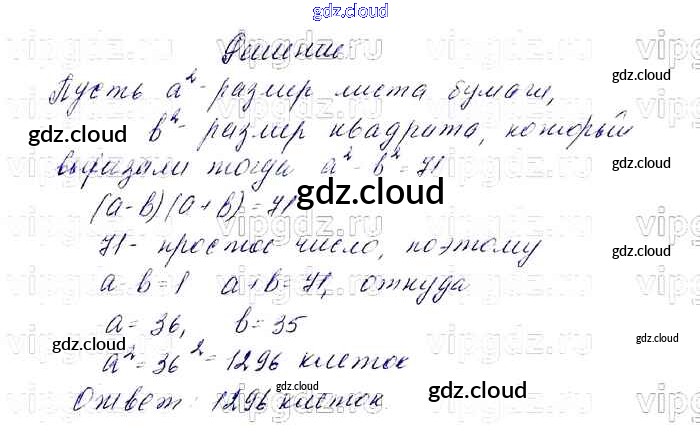 gdz.cloud
Решение
Пусть a²- размер листа бумаги,
b²- размер квадрата, который
вырезали тогда a² - b² = 71
(a-b)(a+b)=71
71- простое число, поэтому
a-b=1 a+b=71, откуда
a=36, b=35
a²=36²=1296 клеток
Ответ: 1296 клеток.
gdz.cloud
gdz.cloud
gdz.cloud
gdz.cloud
gdz.cloud
gdz.cloud
gdz.cloud
gdz.cloud
gdz.cloud
vipgdz.ru